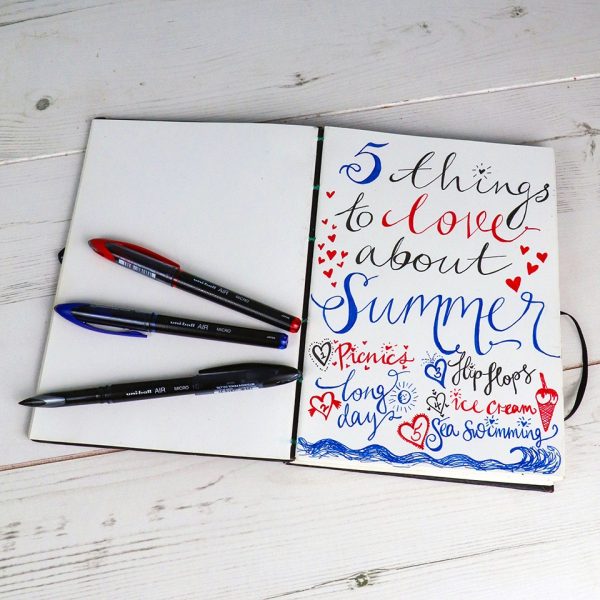 5 things
to love
about
Summer
1 Picnics
2 long
day
3 flip flops
4 ice cream
5 Sea Swimming
uni-ball AIR MICRO
uni-ball AIR MICRO
uni-ball AIR MICRO